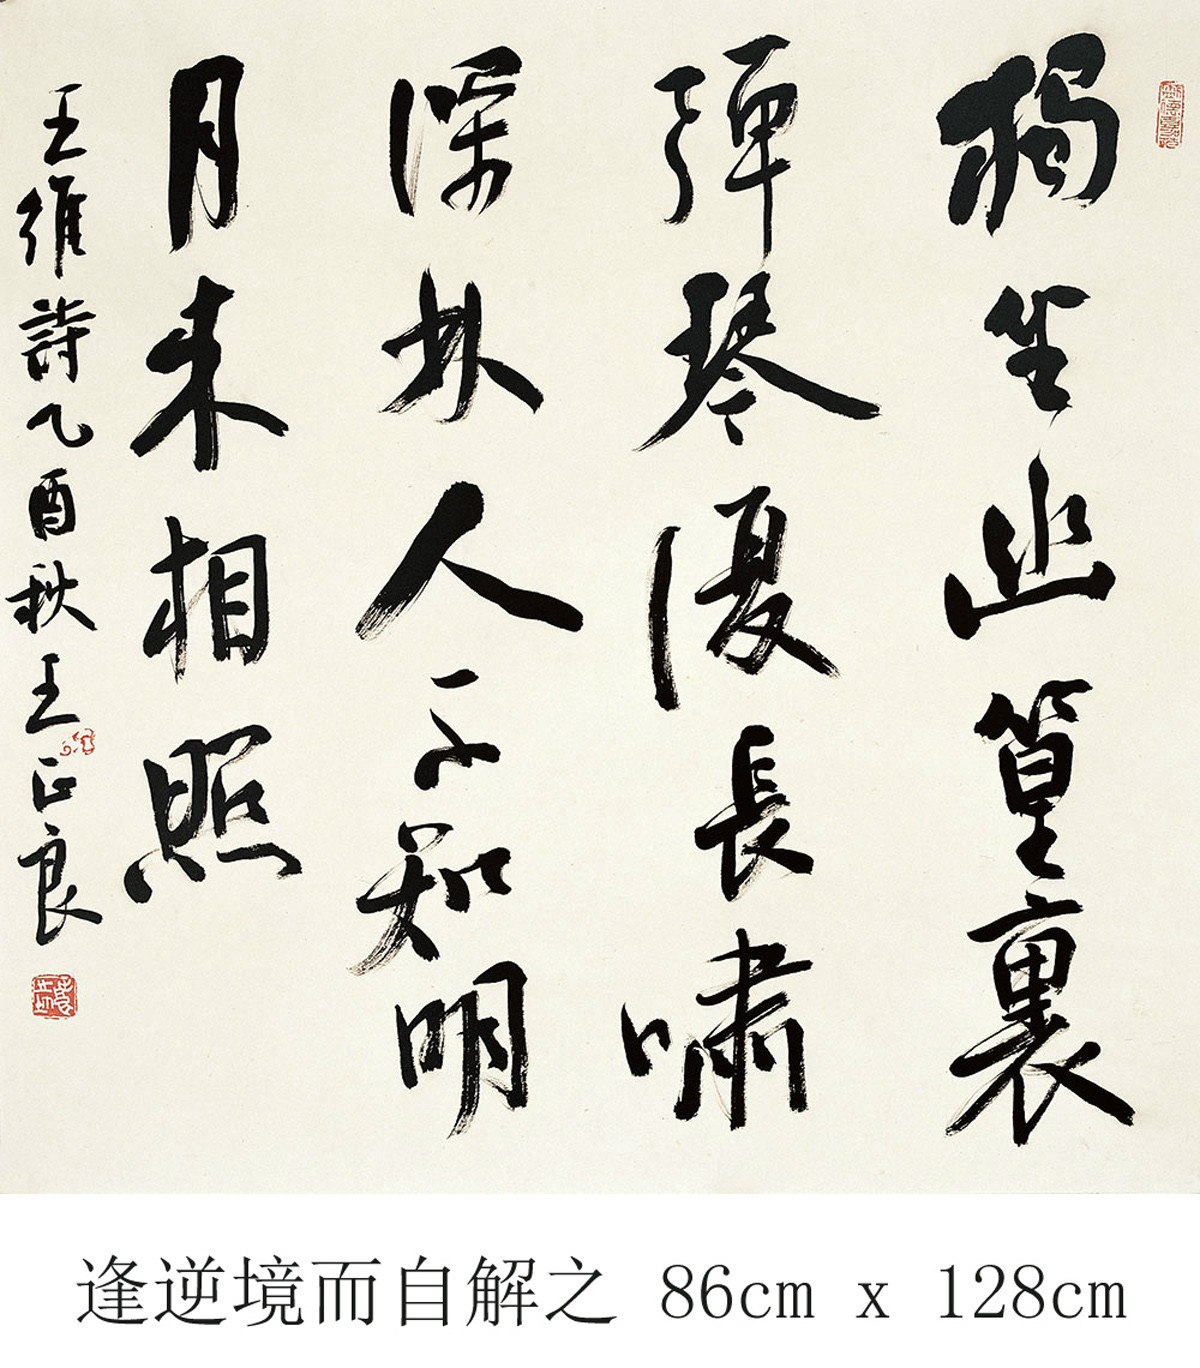 獨坐幽篁裏
彈琴復長嘯
深林人不知明
月来相照
王維詩乙酉秋王正良
逢逆境而自解之 86cm x 128cm